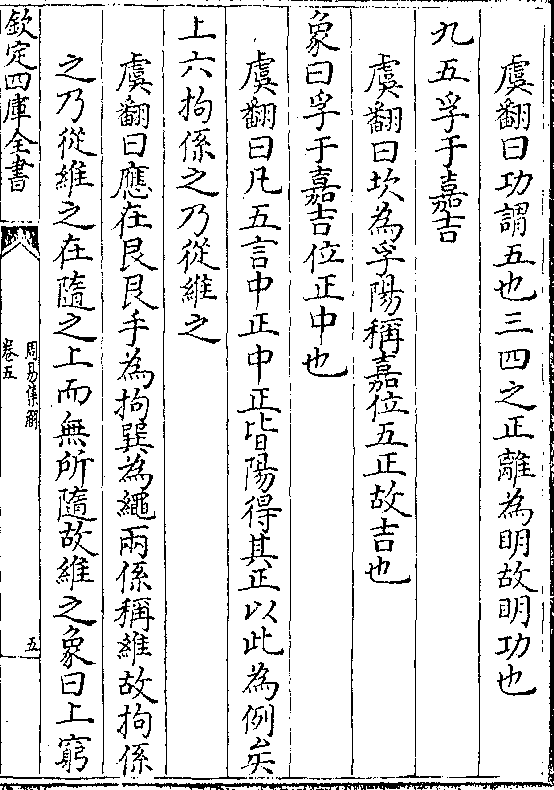 虞翻曰功謂五也三四之正離為明故明功也
九五孚于嘉吉
虞翻曰坎為孚陽稱嘉位五正故吉也
象曰孚于嘉吉位正中也
虞翻曰凡五言中正中正皆陽得其正以此為例矣
上六拘係之乃從維之
虞翻曰應在艮艮手為拘巽為繩兩係稱維故拘係
之乃從維之在隨之上而無所隨故維之象曰上窮
欽定四庫全書
周易集解
卷五
五